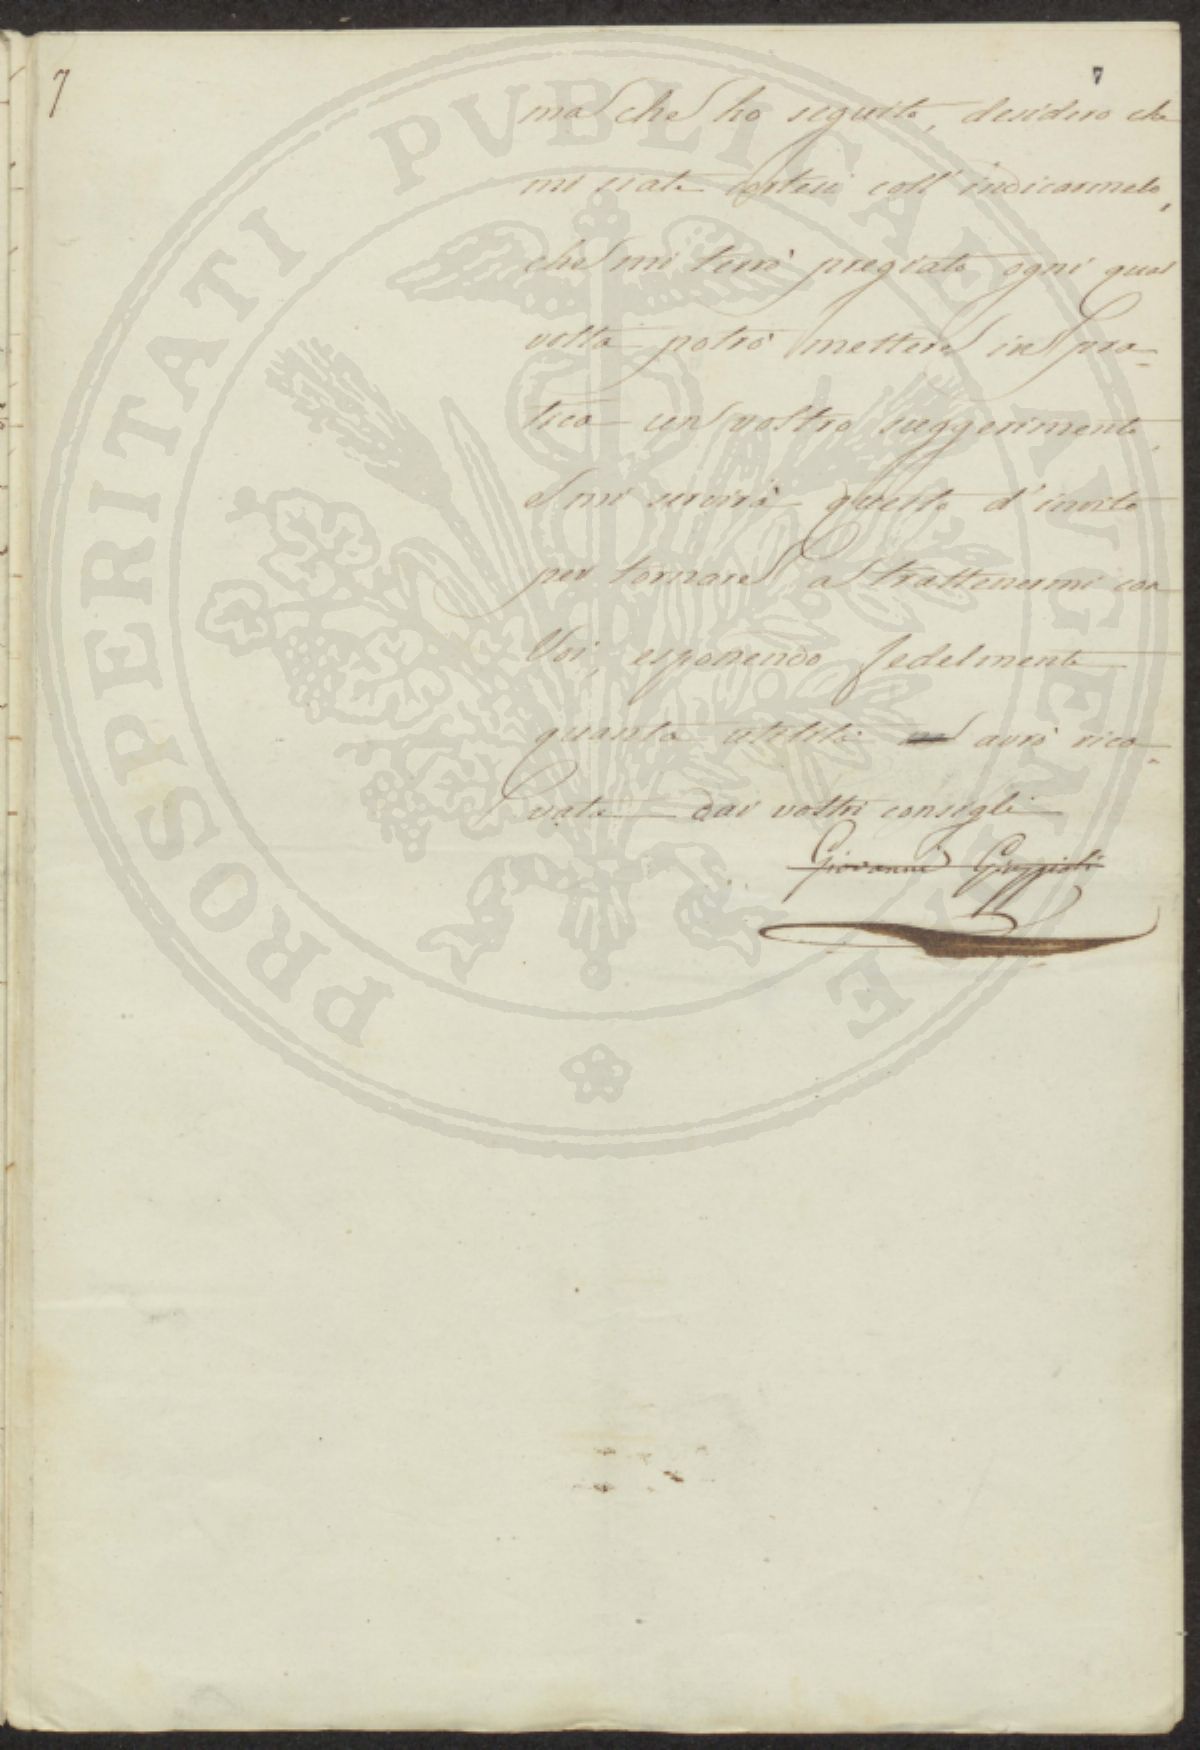 7
7
ma che ho seguito, desidero che
mi siate cortesi coll' indicarmelo,
che mi terrò pregiato ogni qual
volta potrò mettere in pra-
tica un vostro suggerimento,
e mi servirà questo d' invito
per tornare a trattenermi con
Voi, esponendo fedelmente
quanta utilità avrò rica-
vata dai vostri consigli
Giovanni
PROSPERITATI PUBLICAE AUGENDAE